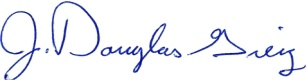 J. Douglas Greig